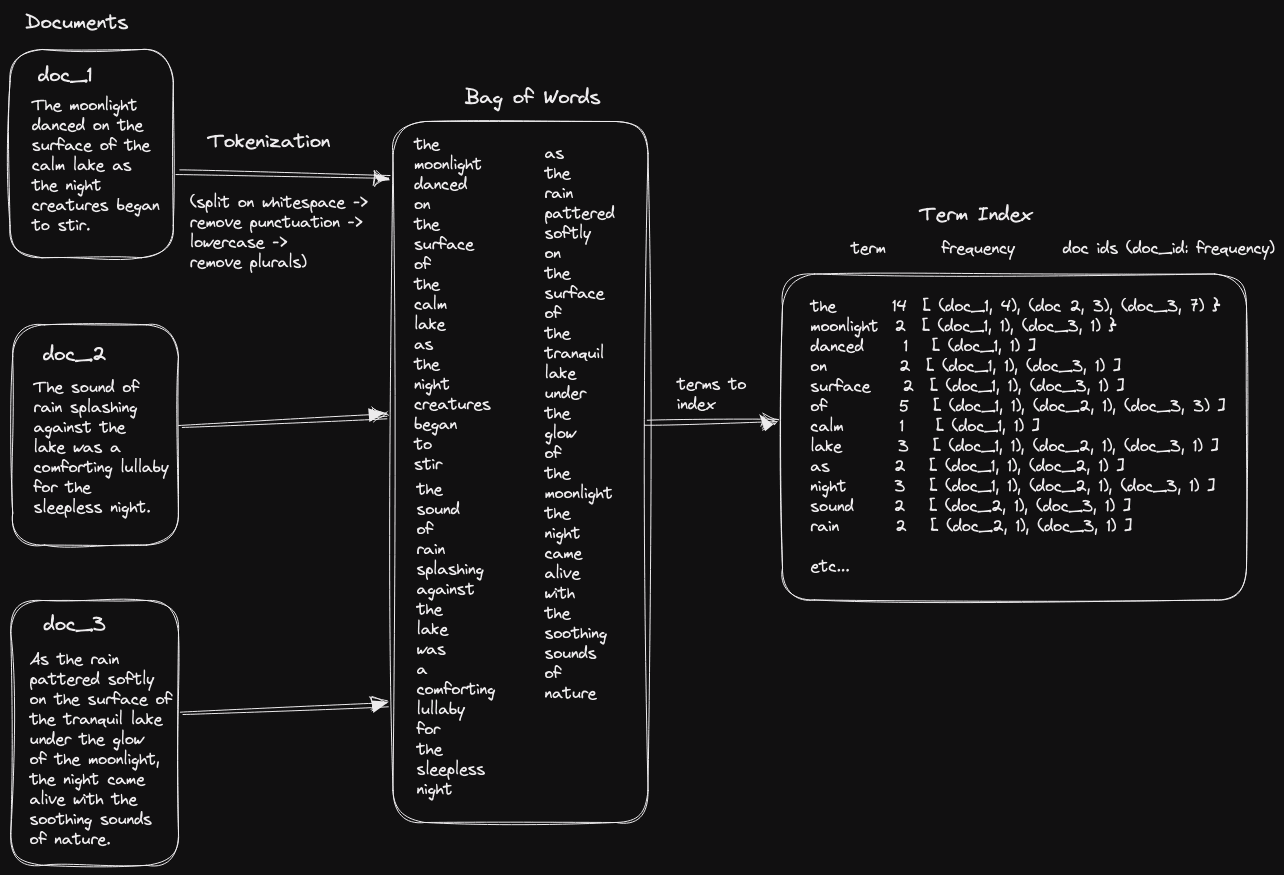 Documents
doc_1
The moonlight
danced on the
surface of the
calm lake as
the night
creatures began
to stir.
Tokenization
(split on whitespace ->
remove punctuation ->
lowercase ->
remove plurals)
doc_2
The sound of
rain splashing
against the
lake was a
comforting lullaby
for the
sleepless night.
doc_3
As the rain
pattered softly
on the surface of
the tranquil lake
under the glow
of the moonlight,
the night came
alive with the
soothing sounds
of nature.
Bag of Words
the
moonlight
danced
on
the
surface
of
the
calm
lake
as
the
night
creatures
began
to
stir
the
sound
of
rain
splashing
against
the
lake
was
a
comforting
lullaby
for
the
sleepless
night
as
the
rain
pattered
softly
on
the
surface
of
the
tranquil
lake
under
the
glow
of
the
moonlight
the
night
came
alive
with
the
soothing
sounds
of
nature
terms to
index
Term Index
term frequency doc ids (doc_id: frequency)
the 14 [ (doc_1, 4), (doc 2, 3), (doc_3, 7) }
moonlight 2 [ (doc_1, 1), (doc_3, 1) }
danced 1 [ (doc_1, 1) ]
on 2 [ (doc_1, 1), (doc_3, 1) ]
surface 2 [ (doc_1, 1), (doc_3, 1) ]
of 5 [ (doc_1, 1), (doc_2, 1), (doc_3, 3) ]
calm 1 [ (doc_1, 1) ]
lake 3 [ (doc_1, 1), (doc_2, 1), (doc_3, 1) ]
as 2 [ (doc_1, 1), (doc_2, 1) ]
night 3 [ (doc_1, 1), (doc_2, 1), (doc_3, 1) ]
sound 2 [ (doc_2, 1), (doc_3, 1) ]
rain 2 [ (doc_2, 1), (doc_3, 1) ]
etc...